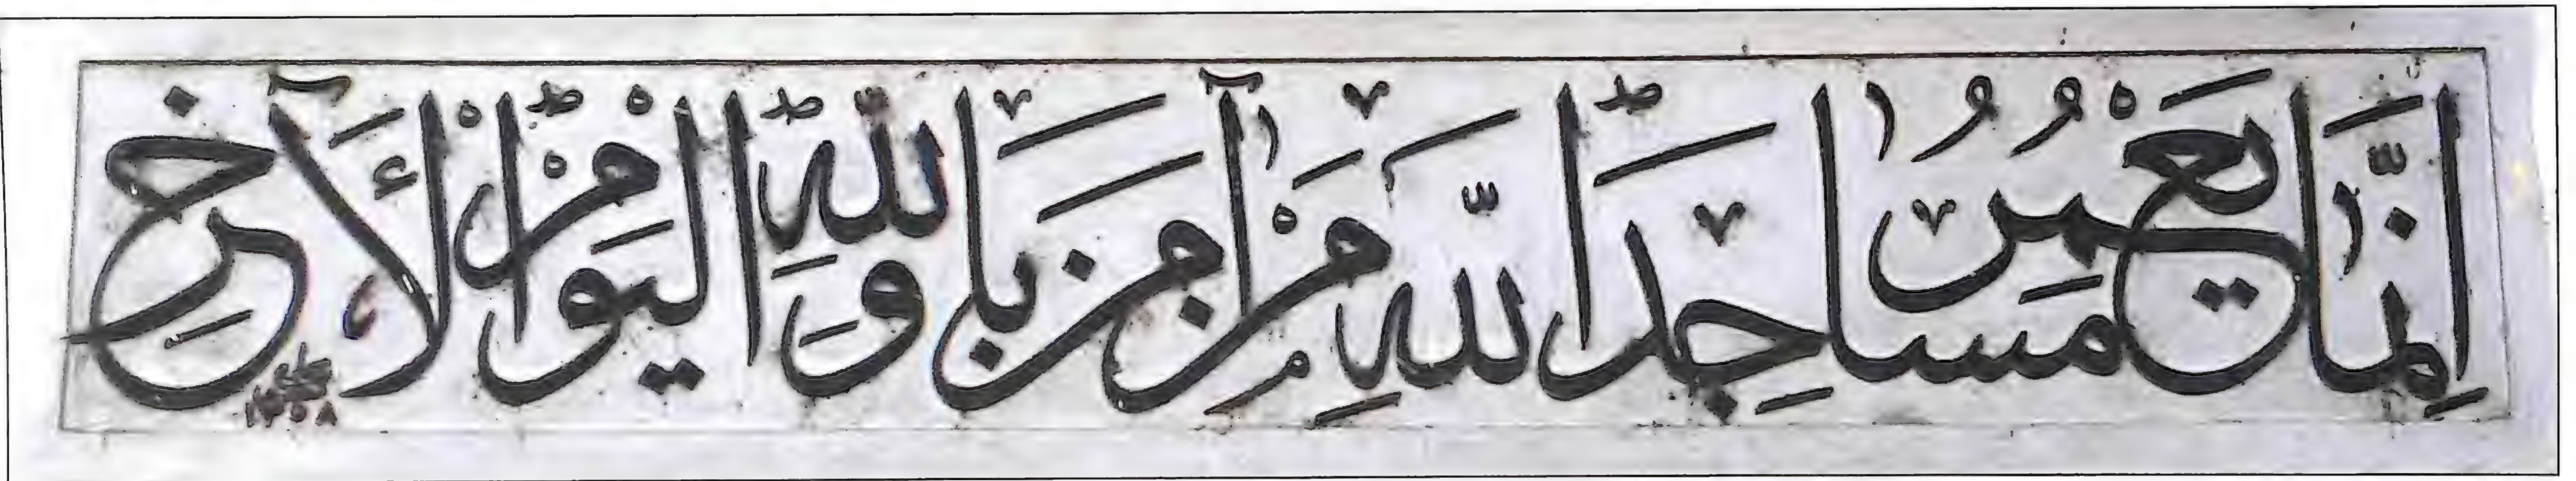 إِنَّمَا يَعْمُرُ مَسَاجِدَ اللَّهِ مَنْ آمَنَ بِاللَّهِ وَالْيَوْمِ الْآخِرِ